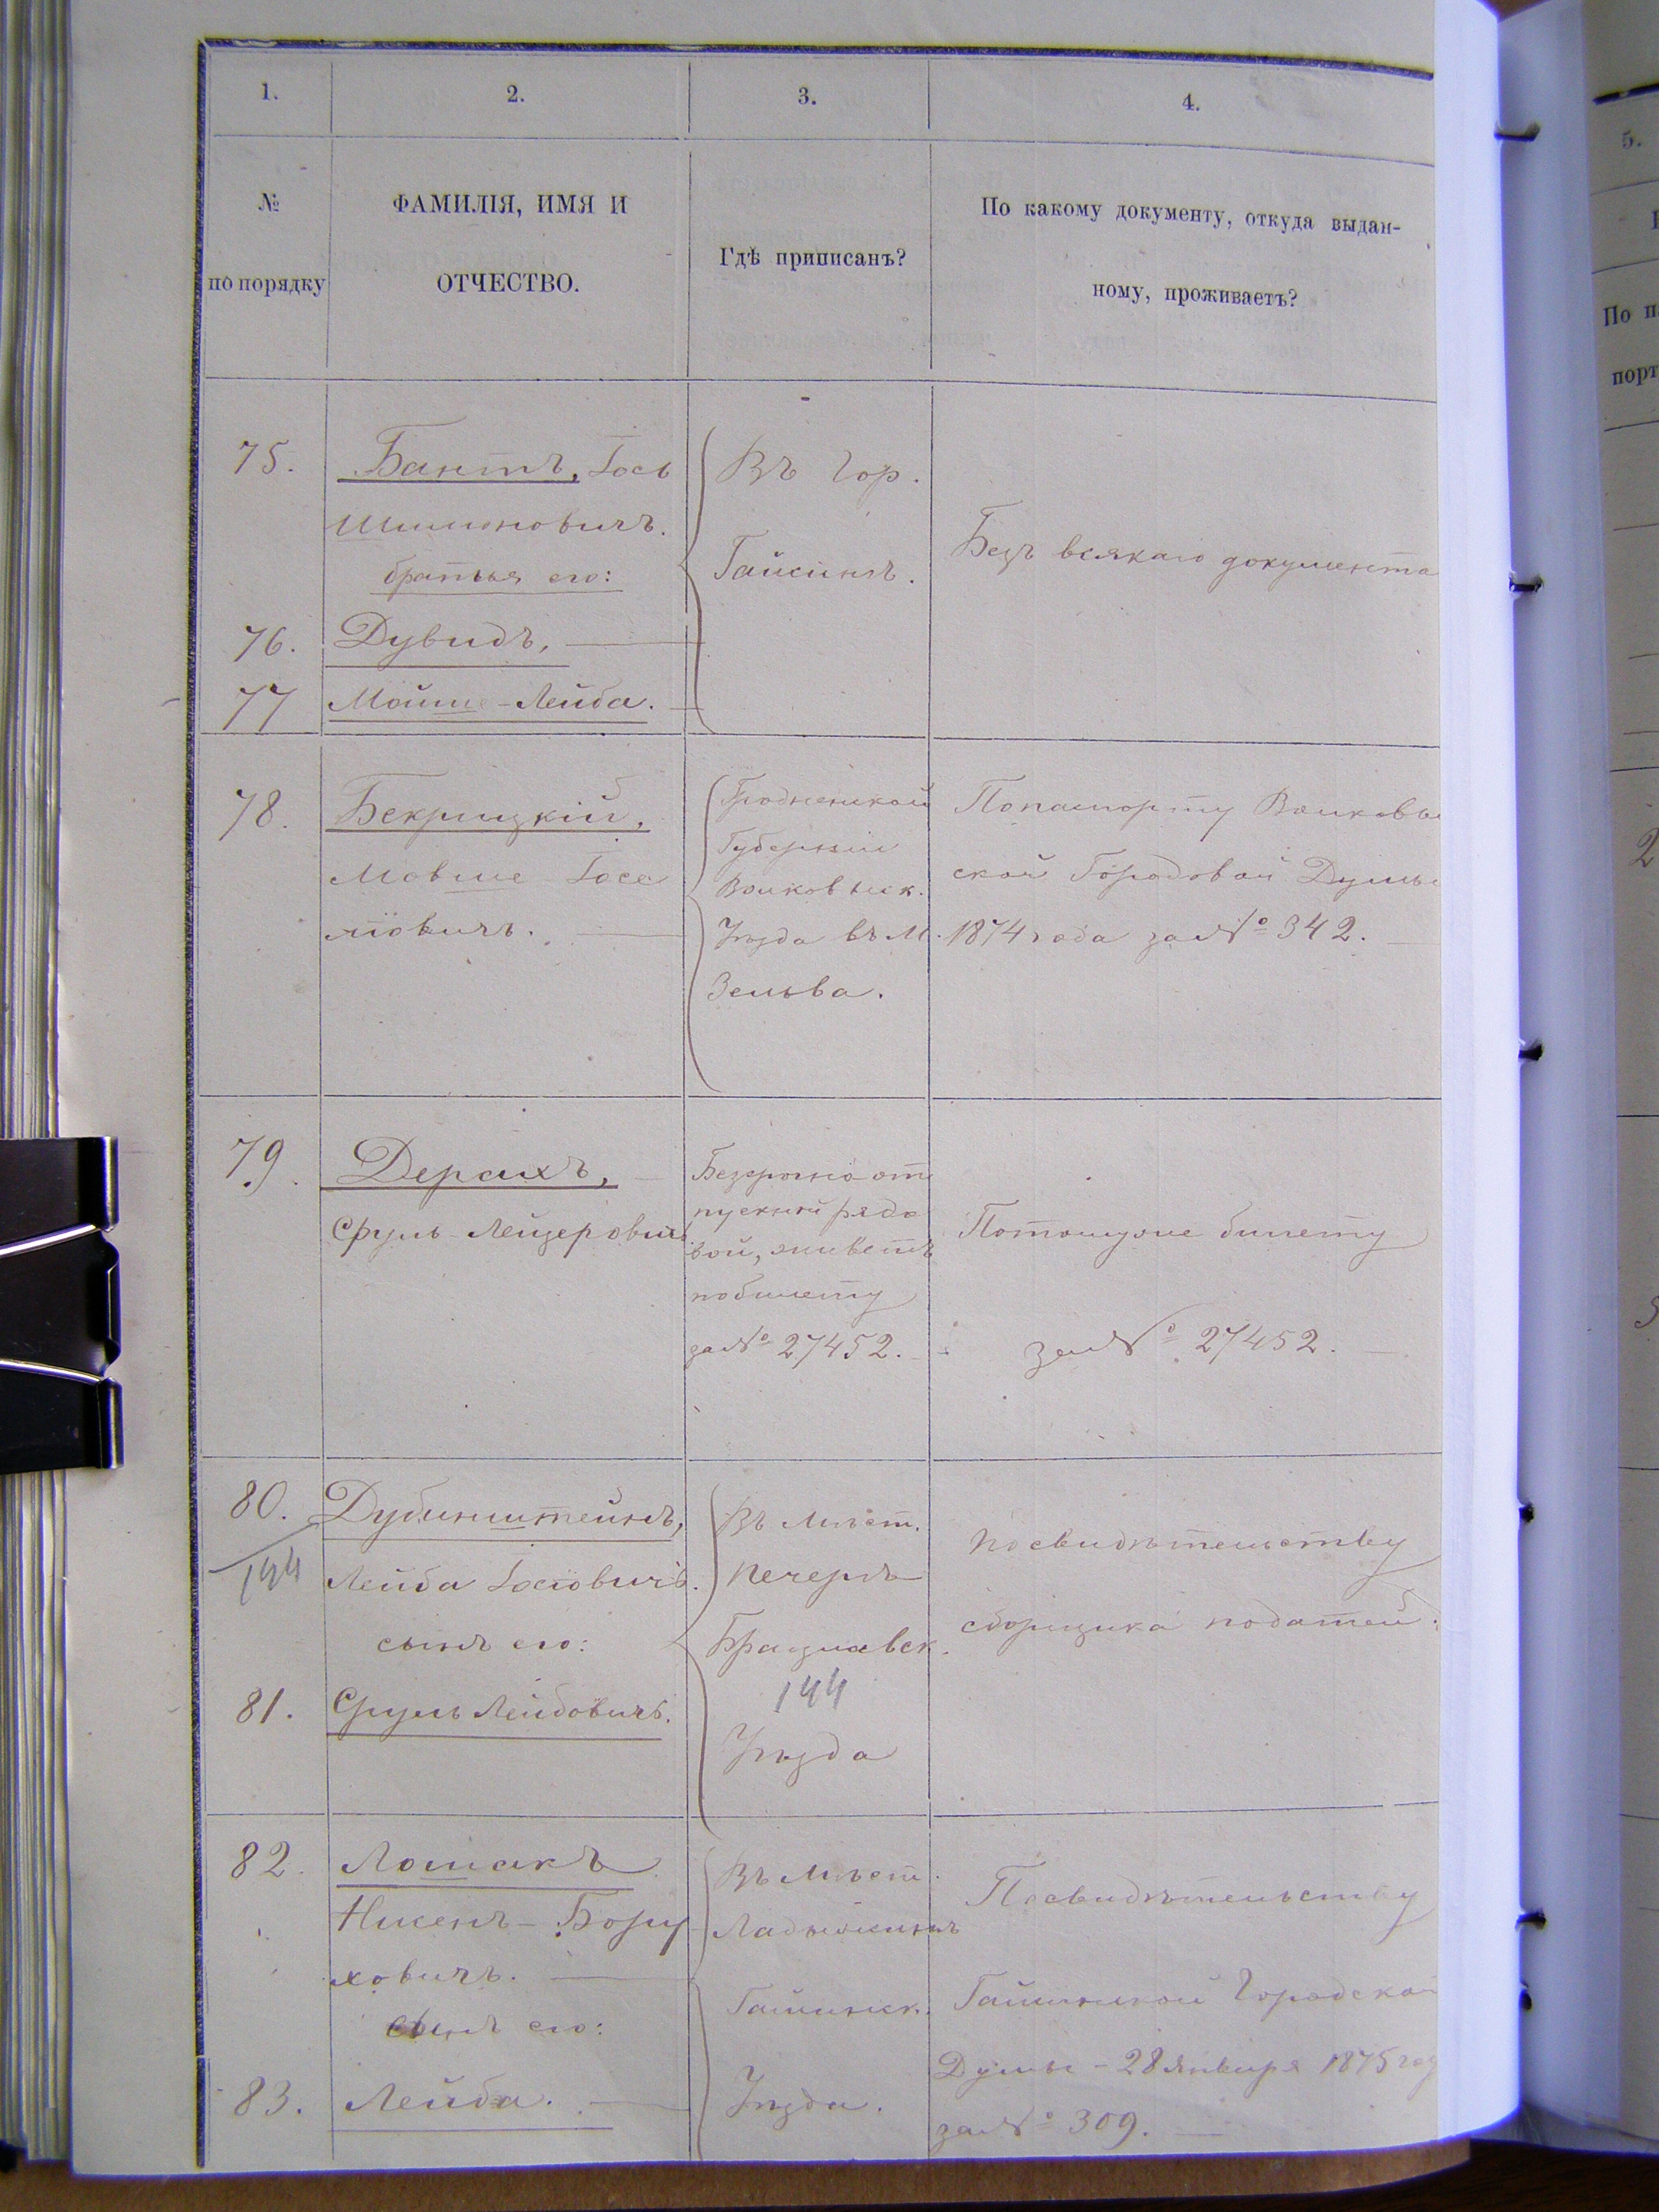 1.
2.
3.
4.
№
по порядку
ФАМИЛІЯ, ИМЯ И
ОТЧЕСТВО.
Гдѣ приписанъ?
По какому документу, откуда выдан-
ному, проживаетъ?
75.
Бантъ, Іось
Шимоновичъ.
братья его:
76.
Дувидъ,
77
Мойше-Лейба.
Въ Гор.
Гайсинѣ.
Безъ всякаго документа
78.
Бекрицкій,
Мовше Іосе
лiовичъ.
Гродненской
Губерніи
Волковыск.
Уѣзда въ М.
Зельва.
Попаспорту Волковы
ской Городовой Думы
1874 года за № 342.
79.
Дерихъ,
Сруль Лейзерович
Безсрочно от
пускной рядо
вой, живетъ
по билету
за № 27452.
Потомуже билету
за № 27452.
80.
144
Дубинштейнъ,
Лейба Іосiовичъ.
сынъ его:
81.
Сруль Лейбовичъ.
Въ Мѣст.
Печерѣ
Брацлавск.
144
Уѣзда
По свидѣтельству
сборщика податей
82.
Лошакъ
Бору
ховичъ.
сынъ его:
83.
Лейба.
Въ Мѣст.
Ладыжинѣ
Гайсинск.
Уѣзда.
По свидѣтельству
Гайсинской Городской
Думы - 28 Января 1875 год
за № 309.
5.
По п
порт
2